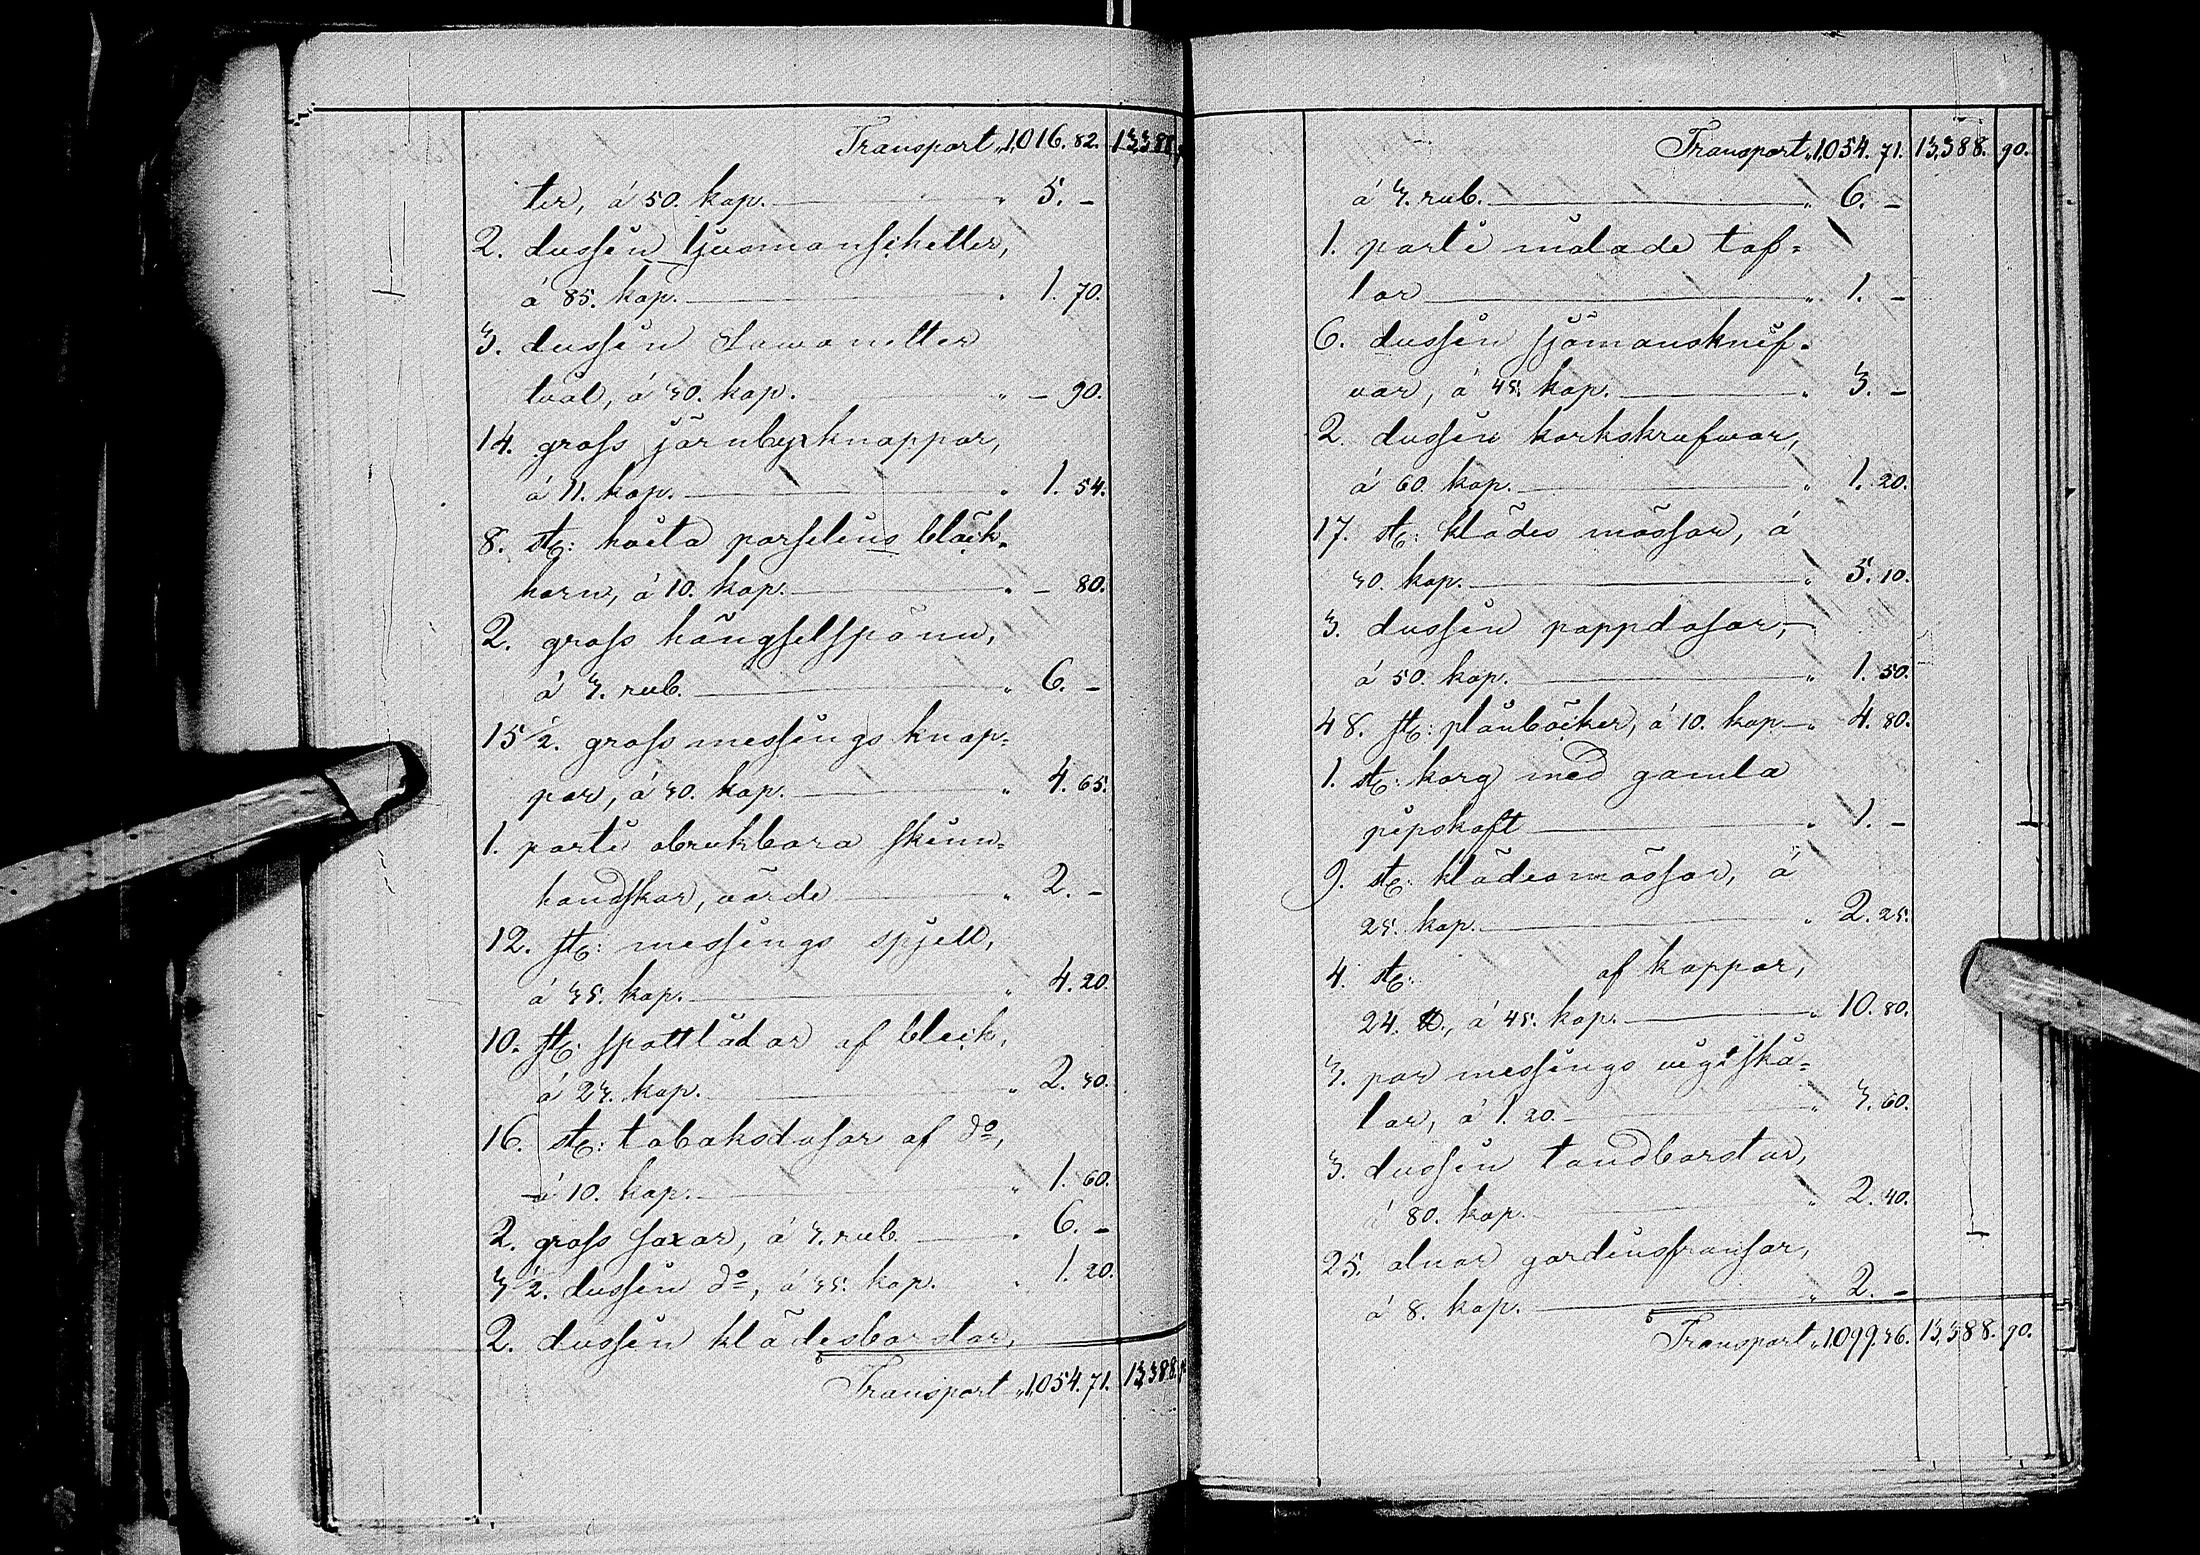 Transport „ 1,016. 82. 13,388.
ter, á 50. kop. „ 5. –
2. dussin ljusmanschetter,
á 85. kop. „ 1. 70.
3. dussin Sawonetter
tvål, á 30. kop. „ – 90.
14. gross järnbyxknappar,
á 11. kop. „ 1. 54.
8. st: hvita porslins bläck-
horn, á 10. kop. „ – 80.
2. gross hängselspänn,
á 3. rub. „ 6. –
15 1/2. gross messings knap-
par, á 30. kop. „ 4. 65.
1. parti obrukbara skinn-
handskar, värde „ 2. –
12. st: messings spjell,
á 35. kop. „ 4. 20.
10. st: spottlådor af bleck,
á 23. kop. „ 2. 30.
16. st: tobaksdosor af do,
á 10. kop. „ 1. 60.
2. gross saxar, á 3. rub. „ 6. –
3 1/2. dussin do, á 35. kop. „ 1. 20.
2. dussin klädesborstar,
Transport „ 1,054. 71. 13,388.
Transport „ 1,054. 71. 13,388. 90.
á 3. rub. „ 6. –
1. parti målade taf-
lor „ 1. –
6. dussin sjömansknif-
var, á 45. kop. „ 3. –
2. dussin korkskrufwar,
á 60. kop. „ 1. 20.
17. st: klädes mössor, á
30. kop. „ 5. 10.
3. dussin pappdosor,
á 50. kop. „ 1. 50.
48. st: plånböcker, á 10. kop „ 4. 80.
1. st: korg med gamla
pipskaft „ 1. –
9. st: klädesmössor, á
25. kop. „ 2. 25.
4. st: af koppar,
24. ℔., á 45. kop. „ 10. 80.
3. par messings vigtskå-
lar, á 1. 20. „ 3. 60.
3. dussin tandborstar,
á 80. kop. „ 2. 40.
25. alnar gardinsfransar,
á 8. kop. „ 2. –
Transport „ 1,099. 36. 13,388. 90.